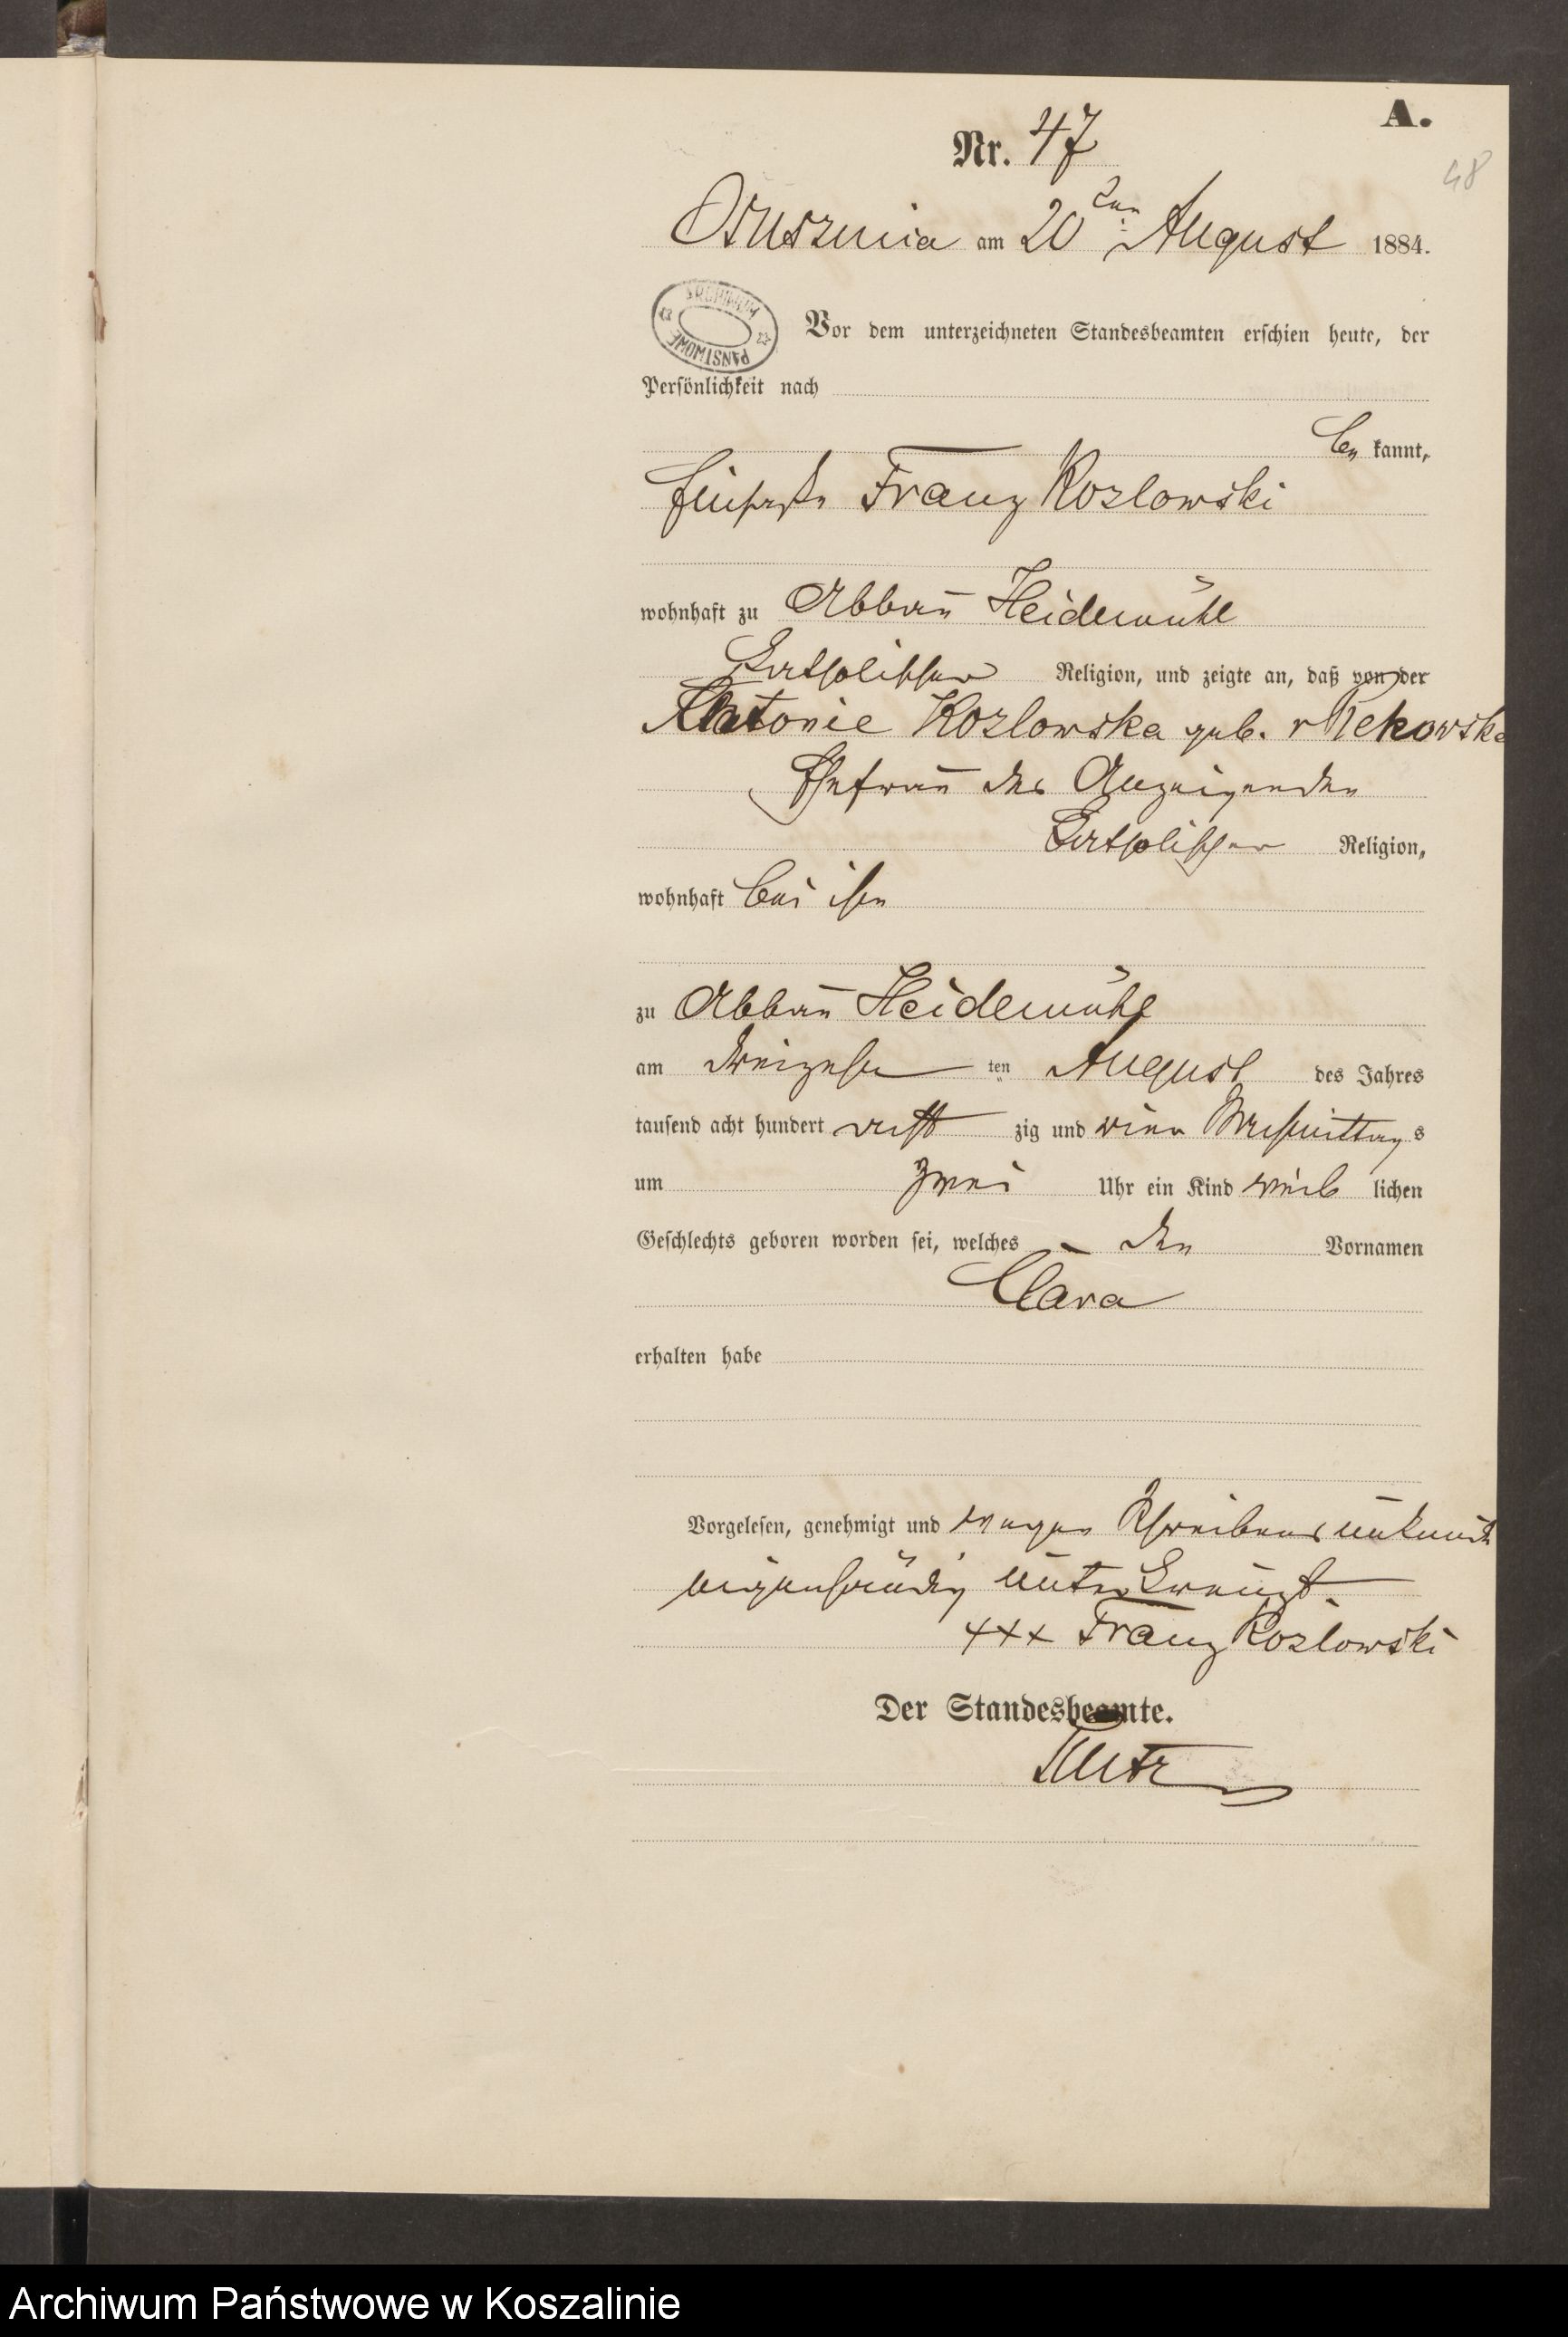 A.
Nr. 47
48
Osusznica am 20ten August 1884.
ARCHIWUM PAŃSTWOWE
Vor dem unterzeichneten Standesbeamten erschien heute, der
Persönlichkeit nach
be kannt,
Franz Kozlowski
wohnhaft zu Abbau Heidemühl
katholischer Religion, und zeigte an, daß von der
Antonie Kozlowska geb. v Rekowska
Ehefrau des Anzeigenden
katholischer Religion,
wohnhaft bei ihm
zu Abbau Heidemühl
am dreizehn ten August des Jahres
tausend acht hundert acht zig und vier Nachmittag s
um zwei Uhr ein Kind weib lichen
Geschlechts geboren worden sei, welches den Vornamen
Clara
erhalten habe
Vorgelesen, genehmigt und wegen Schreibensunkunde
eigenhändig unterkreuzt
+++ Franz Kozlowski
Der Standesbeamte.
Archiwum Państwowe w Koszalinie